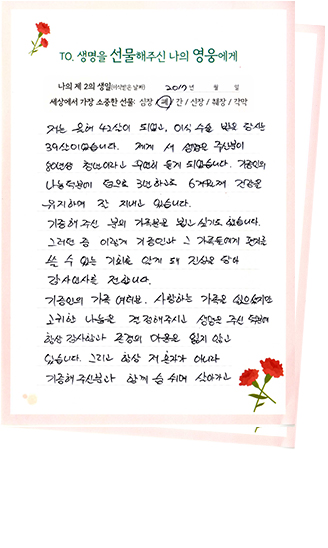 TO. 생명을 선물해주신 나의 영웅에게
나의 제 2의 생일(이식받은 날짜) 2017년 월 일
세상에서 가장 소중한 선물: 심장 / 폐 / 간 / 신장 / 췌장 / 각막
저는 올해 42살이 되었고, 이식 수술 받은 당시
39살이었습니다. 제게 새 생명을 주신분이
80년생 청년이라고 우연히 듣게 되었습니다. 기증인의
나눔덕분에 덤으로 3년하고도 6개월째 건강을
유지하며 잘 지내고 있습니다.
기증해 주신 분의 가족분을 뵙고 싶기도 했습니다.
그러던 중 이렇게 기증인과 그 가족들에게 편지를
쓸 수 있는 기회를 알게 돼 진심을 담아
감사인사를 전합니다.
기증인의 가족 여러분. 사랑하는 가족을 잃으셨지만
고귀한 나눔을 결정해주시고 생명을 주신 덕분에
항상 감사함과 존경의 마음을 잊지 않고
있습니다. 그리고 항상 저 혼자가 아니라
기증해 주신분과 함께 숨 쉬며 살아가고